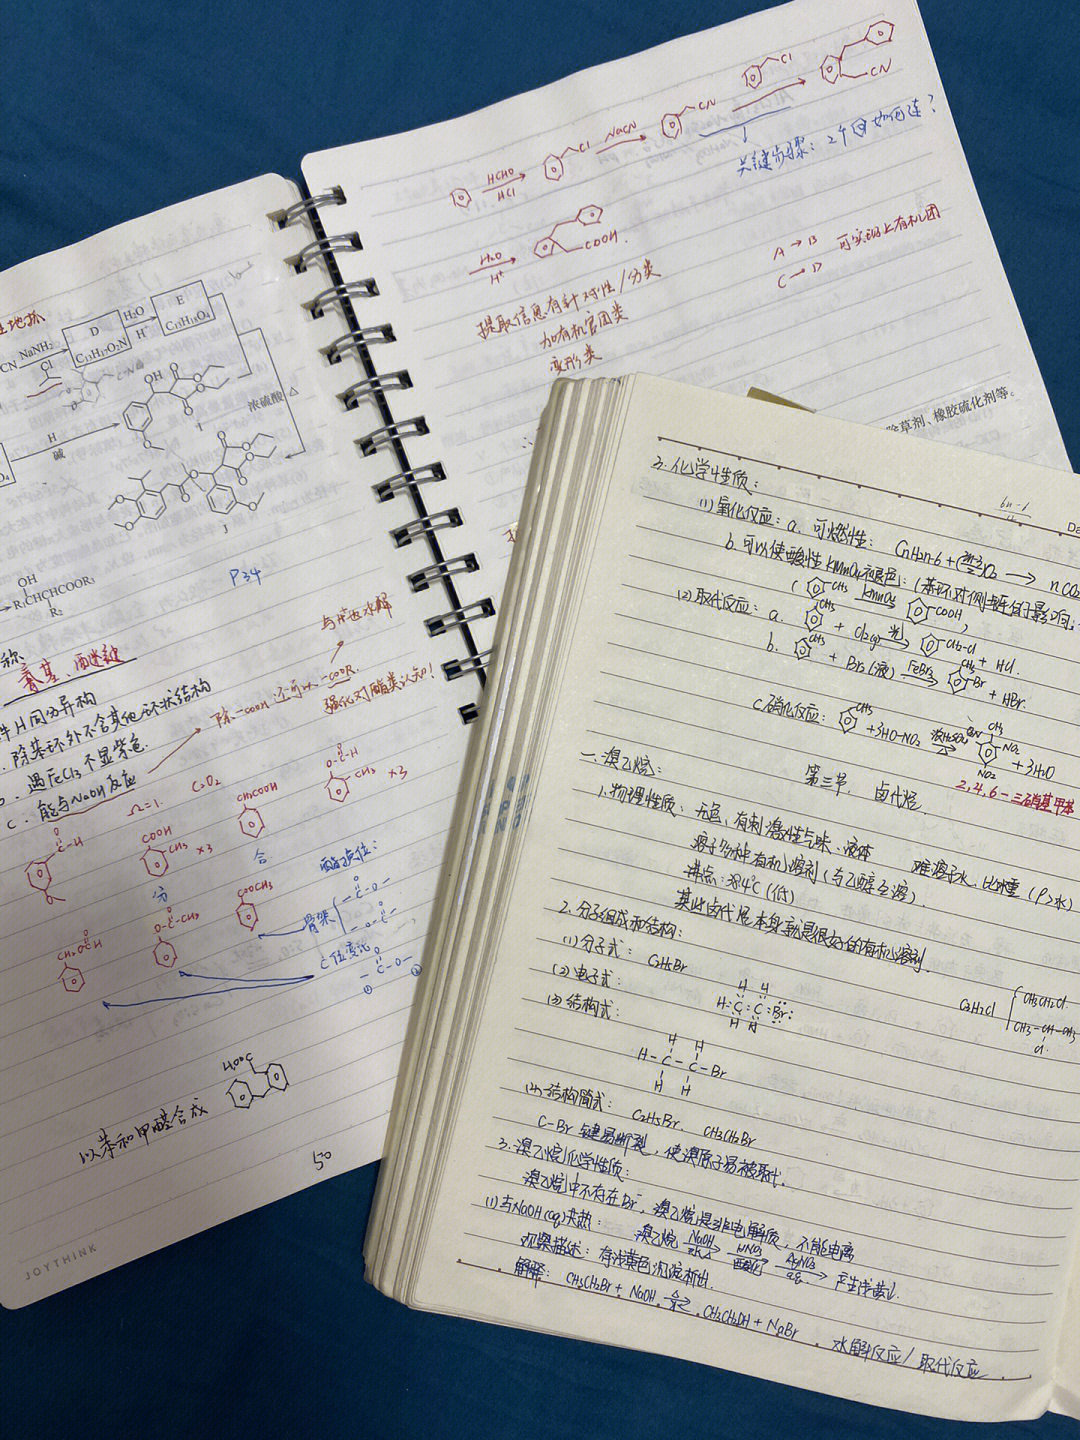 HCHO
HCl
Cl
NaCN
CN
Cl
CN
关键步骤：2个 如何连？
H₂O
H⁺
COOH.
A → B 可实现上有机团
C → D
提取信息有针对性/分类
加有机官团类
变形类
CN NaNH₂
D
C₁₃H₁₇O₂N
H₂O
H⁺
E
C₁₃H₁₈O₄
Cl
H
碱
OH
浓硫酸 △
J
OH
R₁CHCHCOOR₃
R₂
P34
称
氰基、酯键
件H同分异构
除苯环外不含其他环状结构
b. 遇FeCl₃不显紫色.
c. 能与NaOH反应
除-COOH 还可以 -COOR.
强化对酯类认知！
Ω=1. C₂O₂
COOH
CH₃ ×3
CH₂COOH
CH₃ ×3
合
分
酯了点位：
骨架
C位变化
O-C-CH₃
COOCH₃
以苯和甲醛合成
COOH
50
JOYTHINK
除草剂、橡胶硫化剂等。
3. 化学性质：
(1)氧化反应：a. 可燃性： CnH2n-6 + O₂ → nCO₂
b. 可以使酸性KMnO₄褪色：(苯环对侧链的影响：
CH₃ KMnO₄ COOH )
(2)取代反应：a. CH₃ + Cl₂(g) 光 CH₂-Cl + HCl.
b. CH₃ + Br₂(液) FeBr₃ CH₃ Br + HBr.
c. 硝化反应： CH₃ + 3HO-NO₂ 浓H₂SO₄ △ CH₃ NO₂ NO₂ + 3H₂O
2,4,6-三硝基甲苯
第三节. 卤代烃
一. 溴乙烷：
1. 物理性质：无色、有刺激性气味、液体 难溶于水，比水重(ρ>水)
溶于多种有机溶剂(与乙醇互溶).
沸点：38.4℃(低)
某些卤代烃本身就是很好的有机溶剂.
2. 分子组成和结构：
(1)分子式： C₂H₅Br
(2)电子式： H:C:C:Br:
(3)结构式：
H H
H-C-C-Br
H H
C₃H₇Cl
CH₂CH₂Cl.
CH₃-CH-CH₃
Cl.
(4)结构简式： C₂H₅Br CH₃CH₂Br
C-Br 键易断裂，使溴原子易被取代.
3. 溴乙烷化学性质：
溴乙烷中不存在Br⁻，溴乙烷是非电解质，不能电离
(1)与NaOH(aq)共热： 溴乙烷 NaOH 水△ HNO₃ 酸化 AgNO₃ aq. 产生浅黄↓.
现象描述：有浅黄色沉淀析出
解释： CH₃CH₂Br + NaOH △ CH₃CH₂OH + NaBr . 水解反应/取代反应.